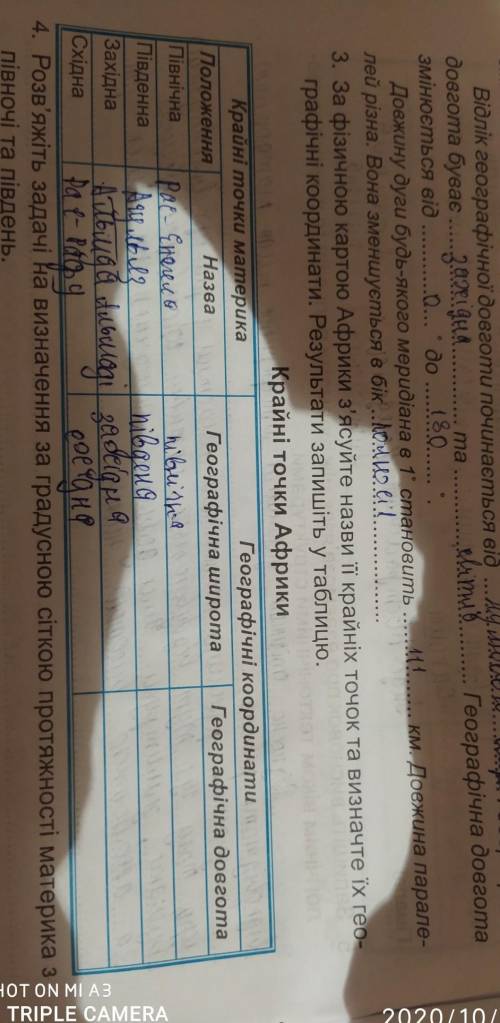 Відлік географічної довготи починається від
довгота буває ... західна ... та ... Географічна довгота
змінюється від ... 0 ...° до ... 180 ...°.
Довжину дуги будь-якого меридіана в 1° становить ... 111 ... км. Довжина парале-
лей різна. Вона зменшується в бік
3. За фізичною картою Африки з'ясуйте назви її крайніх точок та визначте їх гео-
графічні координати. Результати запишіть у таблицю.
Крайні точки Африки
Крайні точки материка Географічні координати
Положення Назва Географічна широта Географічна довгота
Північна північна
Південна південа
Західна західна
Східна
4. Розв'яжіть задачі на визначення за градусною сіткою протяжності материка з
півночі та південь.
SHOT ON MI A3
TRIPLE CAMERA
2020/10/